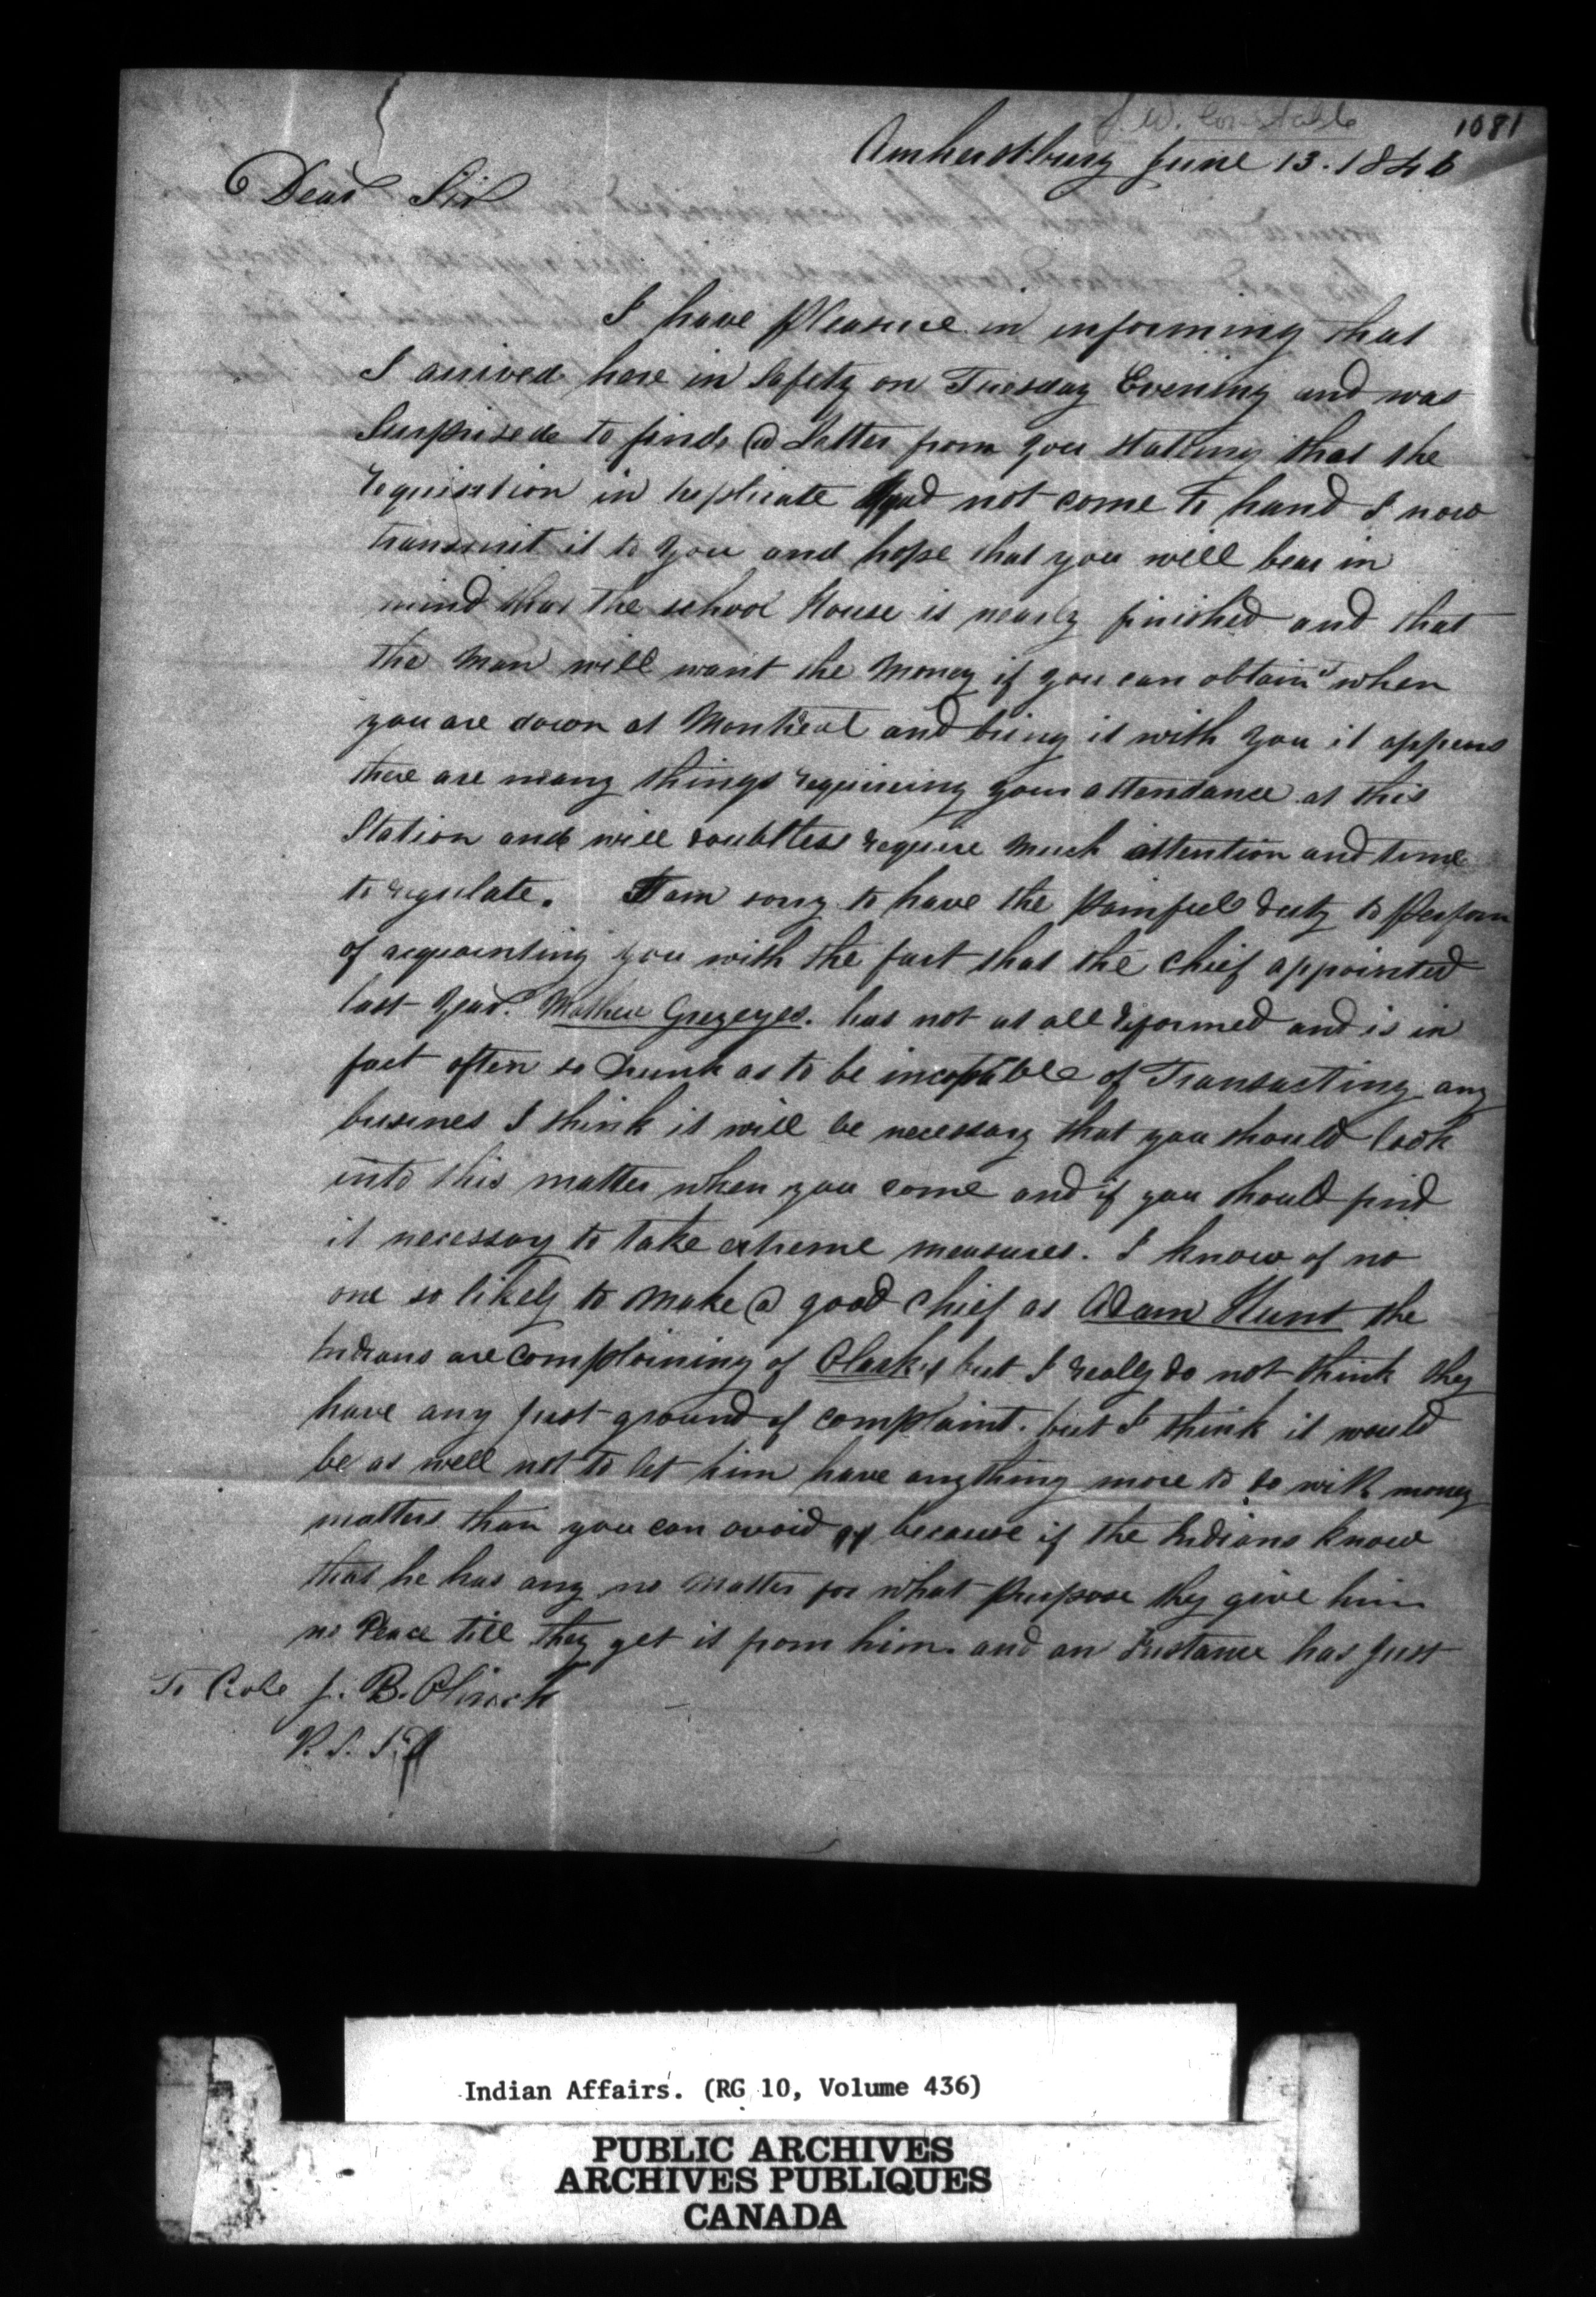 J. W. Constable
1081
Amherstburg June 13. 1846
Dear Sir
I have Pleasure in informing that
I arrived here in Safety on Tuesday Evening and was
Surprised to find a Letter from you stating that the
requisition in triplicate had not come to hand I now
transmit it to you and hope that you will bear in
mind that the school House is nearly finished and that
the Man will want the Money if you can obtain it when
you are down at Montreal and bring it with you it appears
there are many things requiring your attendance at this
Station and will doubtless require much attention and time
to regulate. I am sorry to have the Painful duty to Perform
of acquainting you with the fact that the chief appointed
last Year. Mathew Greyeyes. has not at all reformed and is in
fact often so drunk as to be incapable of Transacting any
busines I think it will be necessary that you should look
into this matter when you come and if you should find
it necessary to take extreme measures. I know of no
one so likely to make a good chief as Adam Hunt the
Indians are complaining of Clarke but I really do not think they
have any just ground of complaint. but I think it would
be as well not to let him have anything more to do with money
matters than you can avoid because if the Indians know
that he has any no matter for what Purpose they give him
no Peace till they get it from him. and an Instance has just
To Colo J. B. Clench
Indian Affairs. (RG 10, Volume 436)
PUBLIC ARCHIVES
ARCHIVES PUBLIQUES
CANADA